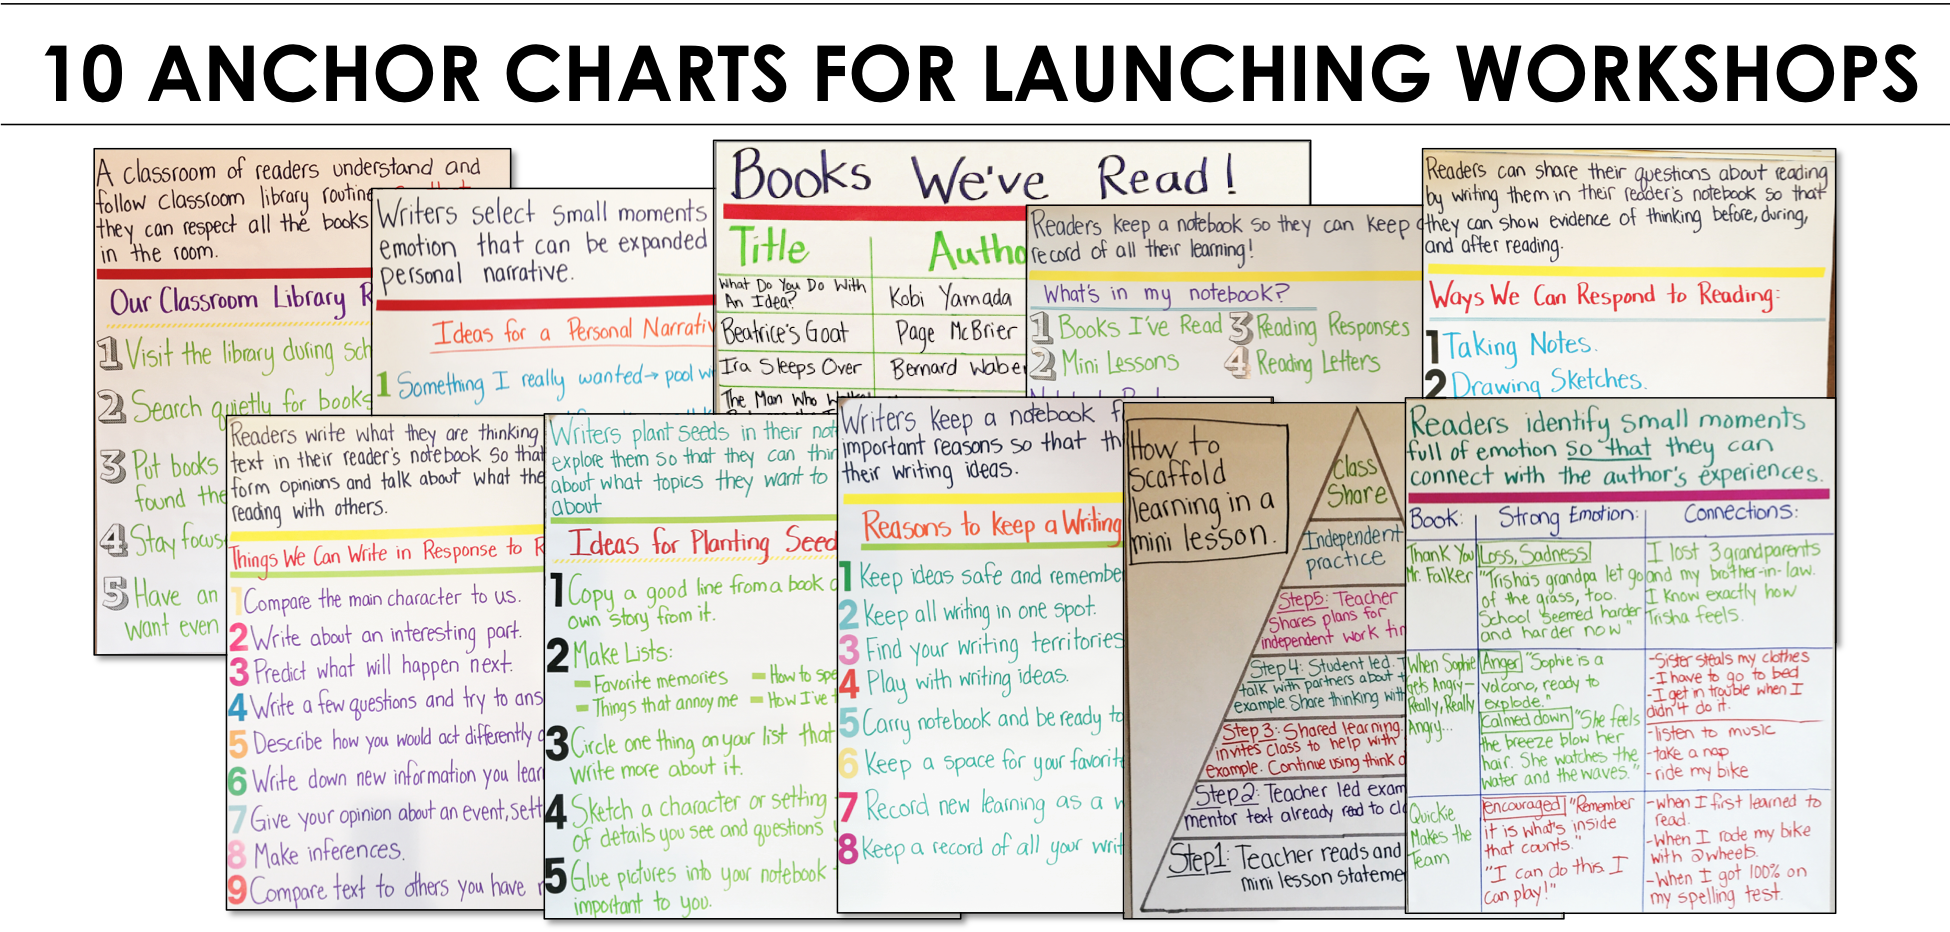 10 ANCHOR CHARTS FOR LAUNCHING WORKSHOPS
A classroom of readers understand and
follow classroom library routine
they can respect all the books
in the room.
Our Classroom Library R
1 Visit the library during sch
2 Search quietly for books
3 Put books
found the
4 Stay focus
5 Have an
want even
Writers select small moments
emotion that can be expanded
personal narrative.
Ideas for a Personal Narrativ
1 Something I really wanted→ pool w
Books We've Read!
Title Autho
What Do You Do With
An Idea? Kobi Yamada
Beatrice's Goat Page McBrier
Ira Sleeps Over Bernard Wabe
The Man Who
Readers keep a notebook so they can keep
record of all their learning!
What's in my notebook?
1 Books I've Read 3 Reading Responses
2 Mini Lessons 4 Reading Letters
Readers can share their questions about reading
by writing them in their reader's notebook so that
they can show evidence of thinking before, during,
and after reading.
Ways We Can Respond to Reading:
1 Taking Notes.
2 Drawing Sketches.
Readers write what they are thinking
text in their reader's notebook so that
form opinions and talk about what the
reading with others.
Things We Can Write in Response to R
1 Compare the main character to us.
2 Write about an interesting part.
3 Predict what will happen next.
4 Write a few questions and try to ans
5 Describe how you would act differently
6 Write down new information you lear
7 Give your opinion about an event, sett
8 Make inferences.
9 Compare text to others you have
Writers plant seeds in their not
explore them so that they can thin
about what topics they want to
about
Ideas for Planting Seed
1 Copy a good line from a book
own story from it.
2 Make Lists:
– Favorite memories – How to spe
– Things that annoy me – How I've
3 Circle one thing on your list that
write more about it.
4 Sketch a character or setting
of details you see and questions
5 Glue pictures into your notebook
important to you.
Writers keep a notebook f
important reasons so that th
their writing ideas.
Reasons to keep a Writing
1 Keep ideas safe and remembe
2 Keep all writing in one spot.
3 Find your writing territories
4 Play with writing ideas.
5 Carry notebook and be ready to
6 Keep a space for your favorit
7 Record new learning as a w
8 Keep a record of all your writ
How to
scaffold
learning in a
mini lesson.
Class
Share
Independent
practice
Step5: Teacher
shares plans for
independent work tim
Step 4: Student led.
talk with partners about
example. Share thinking with
Step 3: Shared learning.
invites class to help with
example. Continue using think
Step 2: Teacher led exam
mentor text already read to cl
Step1: Teacher reads and
mini lesson stateme
Readers identify small moments
full of emotion so that they can
connect with the author's experiences.
Book: Strong Emotion: Connections:
Thank You
Mr. Falker
Loss, Sadness
"Trisha's grandpa let go
of the grass, too.
School seemed harder
and harder now"
I lost 3 grandparents
and my brother-in-law.
I know exactly how
Trisha feels.
When Sophie
gets Angry–
Really, Really
Angry...
Anger "Sophie is a
volcano, ready to
explode."
Calmed down "She feels
the breeze blow her
hair. She watches the
water and the waves."
-Sister steals my clothes
-I have to go to bed
-I get in trouble when I
didn't do it.
-listen to music
-take a nap
-ride my bike
Quickie
Makes the
Team
encouraged "Remember
it is what's inside
that counts."
"I can do this. I
can play!"
-When I first learned to
read.
-When I rode my bike
with 2 wheels.
-When I got 100% on
my spelling test.